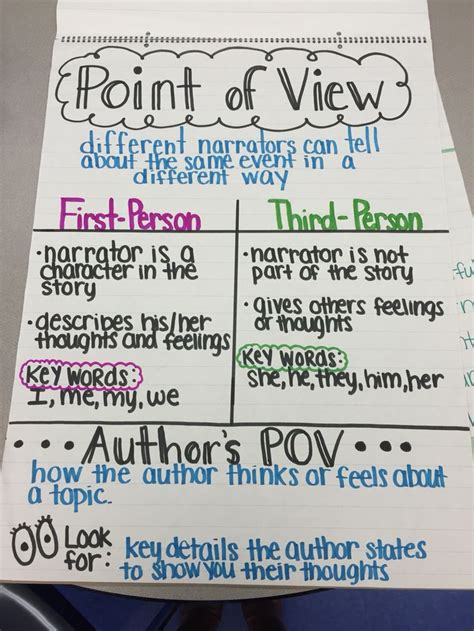 Point of View
different narrators can tell
about the same event in a
different way
First-Person
· narrator is a
character in the
story
· describes his/her
thoughts and feelings
Key Words:
I, me, my, we
Third-Person
· narrator is not
part of the story
· gives others feelings
or thoughts
Key Words:
she, he, they, him, her
••• Author's POV •••
how the author thinks or feels about
a topic.
Look
for:
key details the author states
to show you their thoughts